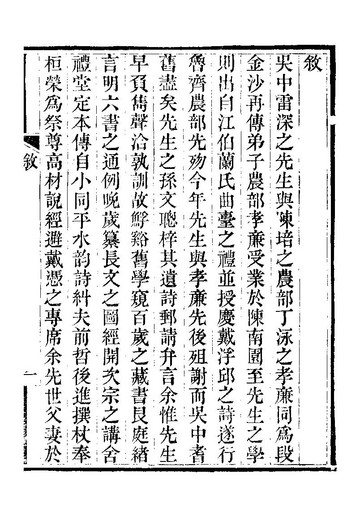 敘
吳中雷深之先生與陳培之農部丁泳之孝亷同爲段
金沙再傳弟子農部孝亷受業於陳南園至先生之學
則出自江伯蘭氏曲臺之禮並授慶戴浮邱之詩遂行
魯齊農部先歿今年先生與孝亷先後殂謝而吳中耆
舊盡矣先生之孫文聰梓其遺詩郵請弁言余惟先生
早負雋聲洽孰訓故鮃谿舊學窺百歲之藏書艮庭緒
言明六書之通例晚歲纂長文之圖經開次宗之講舍
禮堂定本傳自小同平水韵詩糾夫前哲後進撰杖奉
桓榮爲祭尊高材說經避戴憑之專席余先世父妻於
敘
一